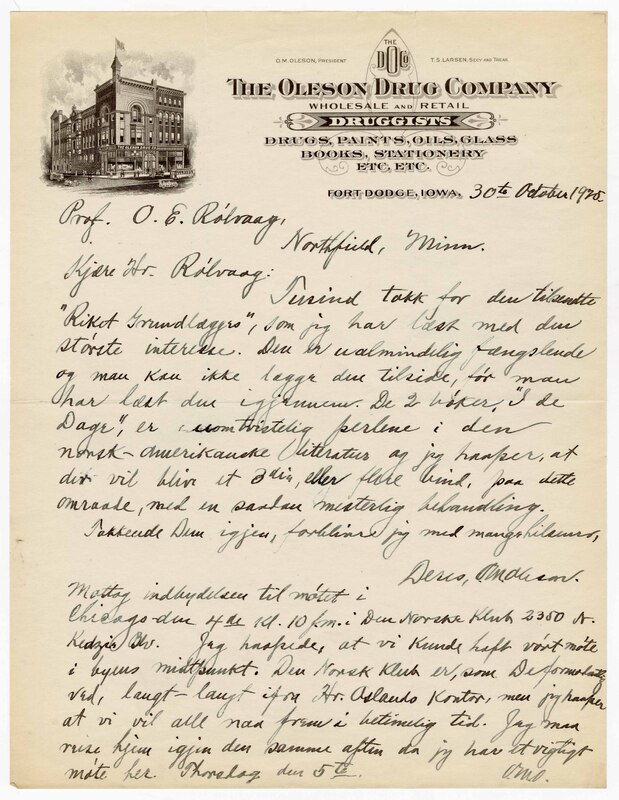 O.M. OLESON, PRESIDENT
THE
DOCo
T.S. LARSEN, SECY AND TREAS.
THE OLESON DRUG COMPANY
WHOLESALE AND RETAIL
DRUGGISTS
DRUGS, PAINTS, OILS, GLASS
BOOKS, STATIONERY
ETC, ETC.
THE OLESON DRUG CO
FORT DODGE, IOWA, 30te October 1925.
Prof. O. E. Rölvaag,
Northfield, Minn.
Kjære Hr. Rölvaag:
Tusind takk for den tilsendte
"Riket Grundlægges", som jeg har læst med den
störste interesse. Den er ualmindelig fængslende
og man kan ikke lægge den tilside, för man
har læst den igjennem. De 2 böker, "I de
Dage", er uomtvistelig perlene i den
norsk-amerikanske literatur og jeg haaper, at
der vil blive et 3die, eller flere bind, paa dette
omraade, med en saadan mesterlig behandling.
Takkende Dem igjen, forblivre jeg med mange hilsener,
Deres, OMOleson.
Mottog indbydelsen til mötet i
Chicago den 4de kl. 10 fm. i Den Norske Klub 2350 N.
Kedzie Blv. Jeg haapede, at vi kunde haft vört möte
i byens midtpunkt. Den Norsk Klub er, som De formodentlig
ved, langt-langt ifra Hr. Oslands Kontor, men jeg haaper
at vi vil alle naa frem i betimelig tid. Jeg maa
reise hjem igjen den samme aften da jeg har et vigtigt
möte her. Thorsdag den 5te.
O.M.O.